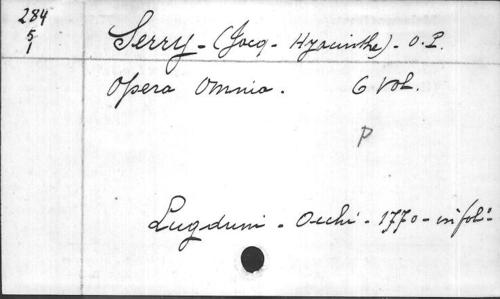 284
5
1
Serry - (Jacq - Hyacinthe) - O.P.
Opera Omnia. 6 Vol.
P
Lugduni - Occhi - 1770 - in fol: